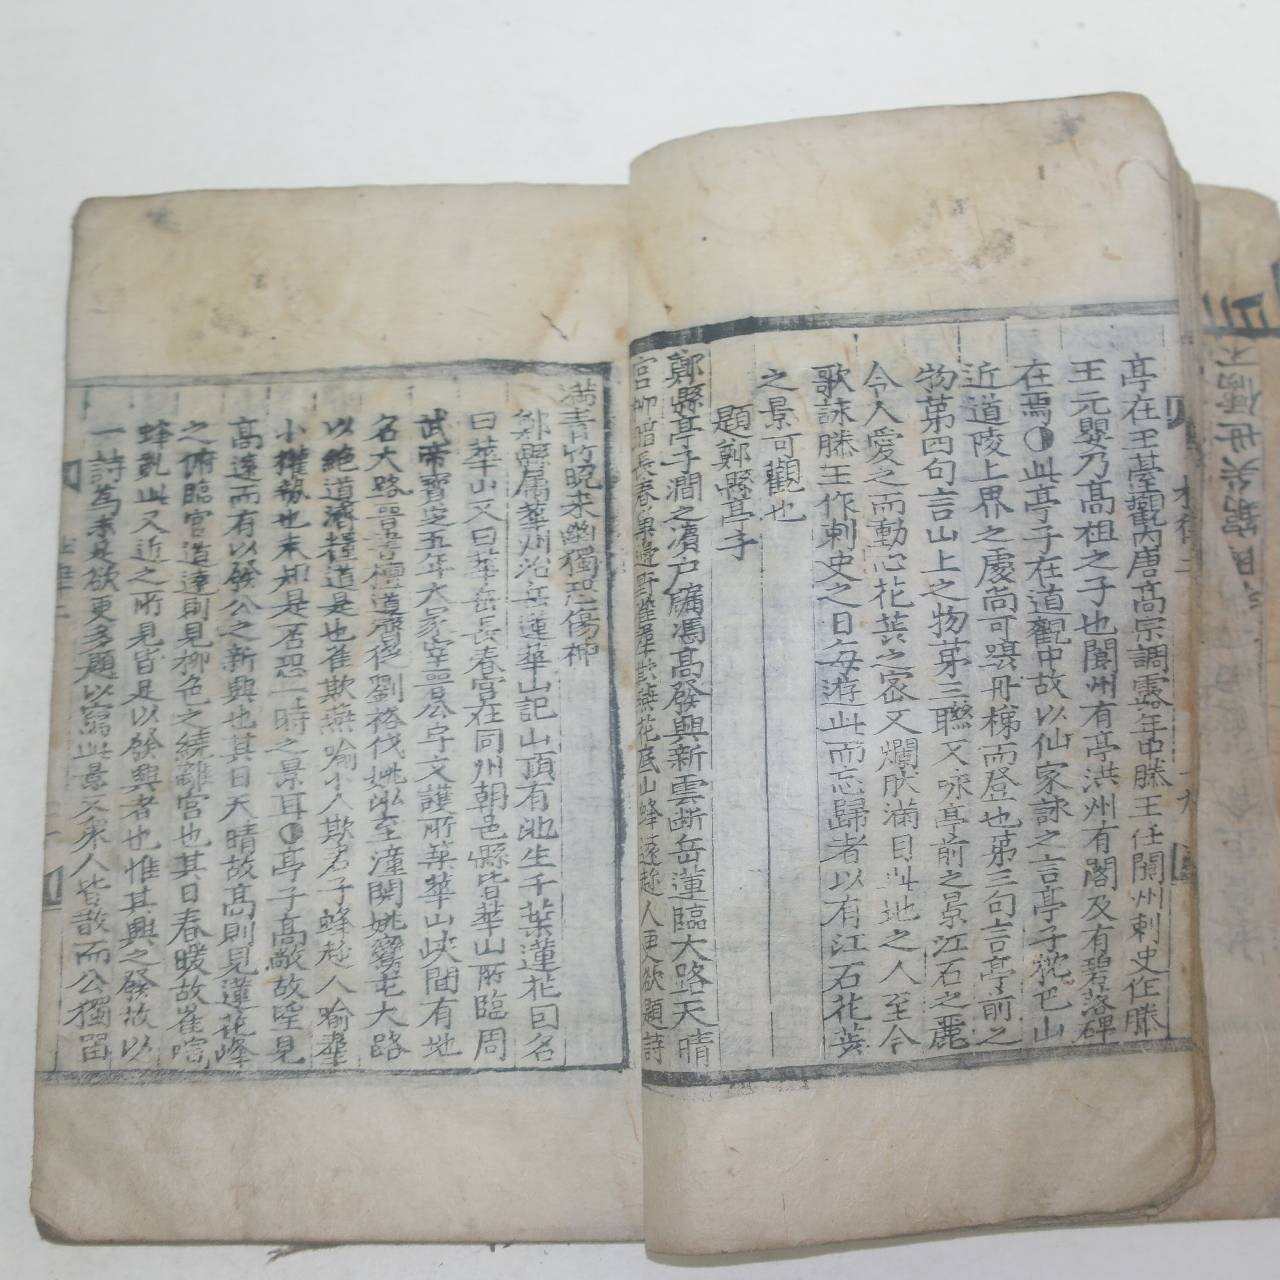 亭在王臺觀內唐高宗調露年中滕王任閬州刺史作滕
王元嬰乃高祖之子也閬州有亭洪州有閣及有碧落碑
在焉◑此亭子在道觀中故以仙家詠之言亭子枕巴山
近道陵上界之處尚可躡丹梯而登也第三句言亭前之
物第四句言山上之物第三聯又咏亭前之景江石之麗
令人愛之而動心花蘂之密又爛然滿目此地之人至今
歌詠滕王作刺史之日每遊此而忘歸者以有江石花蘂
之景可觀也
題鄭縣亭子
鄭縣亭子澗之濱户牖馮高發興新雲斷岳蓮臨大路天晴
宮柳暗長春巢邊野雀群欺燕花底山蜂遠趂人更欲題詩
滿青竹晚来幽獨恐傷神
鄭縣屬華州治岳蓮華山記山頂有池生千葉蓮花囙名
曰華山又曰華岳長春宮在同州朝邑縣皆華山所臨周
武帝寶芝五年大冡宰晋公宇文護所築華山峽間有地
名大路晋書檀道濟從劉裕伐姚泓至潼関姚鸞屯大路
以絶道濟糧道是也雀欺燕喻小人欺君子蜂趂人喻羣
小 也未知是否恐一時之景耳◑亭子高敞故望見
高遠而有以發公之新興也其日天晴故高則見蓮花峰
之俯臨官道遠則見柳色之繞離宮也其日春暖故雀喧
蜂亂此又近之所見皆足以發興者也惟其興之發故以
一詩為未足欲更多題以寫此景又衆人皆散而公獨留